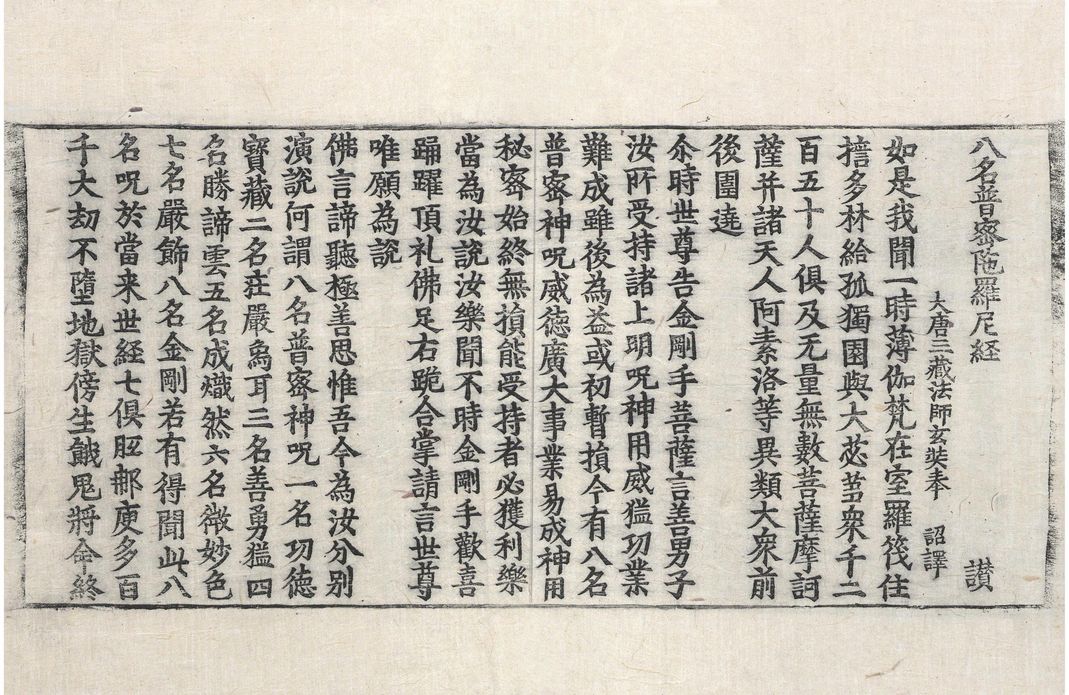 八名普密陁羅尼経　讃
大唐三藏法師玄奘奉　詔譯
如是我聞一時薄伽梵在室羅筏住
擔多林給孤獨園與大苾芻衆千二
百五十人俱及无量無數菩薩摩訶
薩并諸天人阿素洛等異類大衆前
後圍遶
尒時世尊告金剛手菩薩言善男子
汝所受持諸上明呪神用威猛功業
難成雖後為益或初暫損今有八名
普密神呪威德廣大事業易成神用
秘密始終無損能受持者必獲利樂
當為汝説汝樂聞不時金剛手歡喜
踊躍頂礼佛足右跪合掌請言世尊
唯願為説
佛言諦聽極善思惟吾今為汝分別
演説何謂八名普密神呪一名功德
寳藏二名莊嚴象耳三名善勇猛四
名勝諦雲五名成熾然六名微妙色
七名嚴飾八名金剛若有得聞此八
名呪於當来世経七俱胝那庾多百
千大劫不墮地獄傍生餓鬼將命終